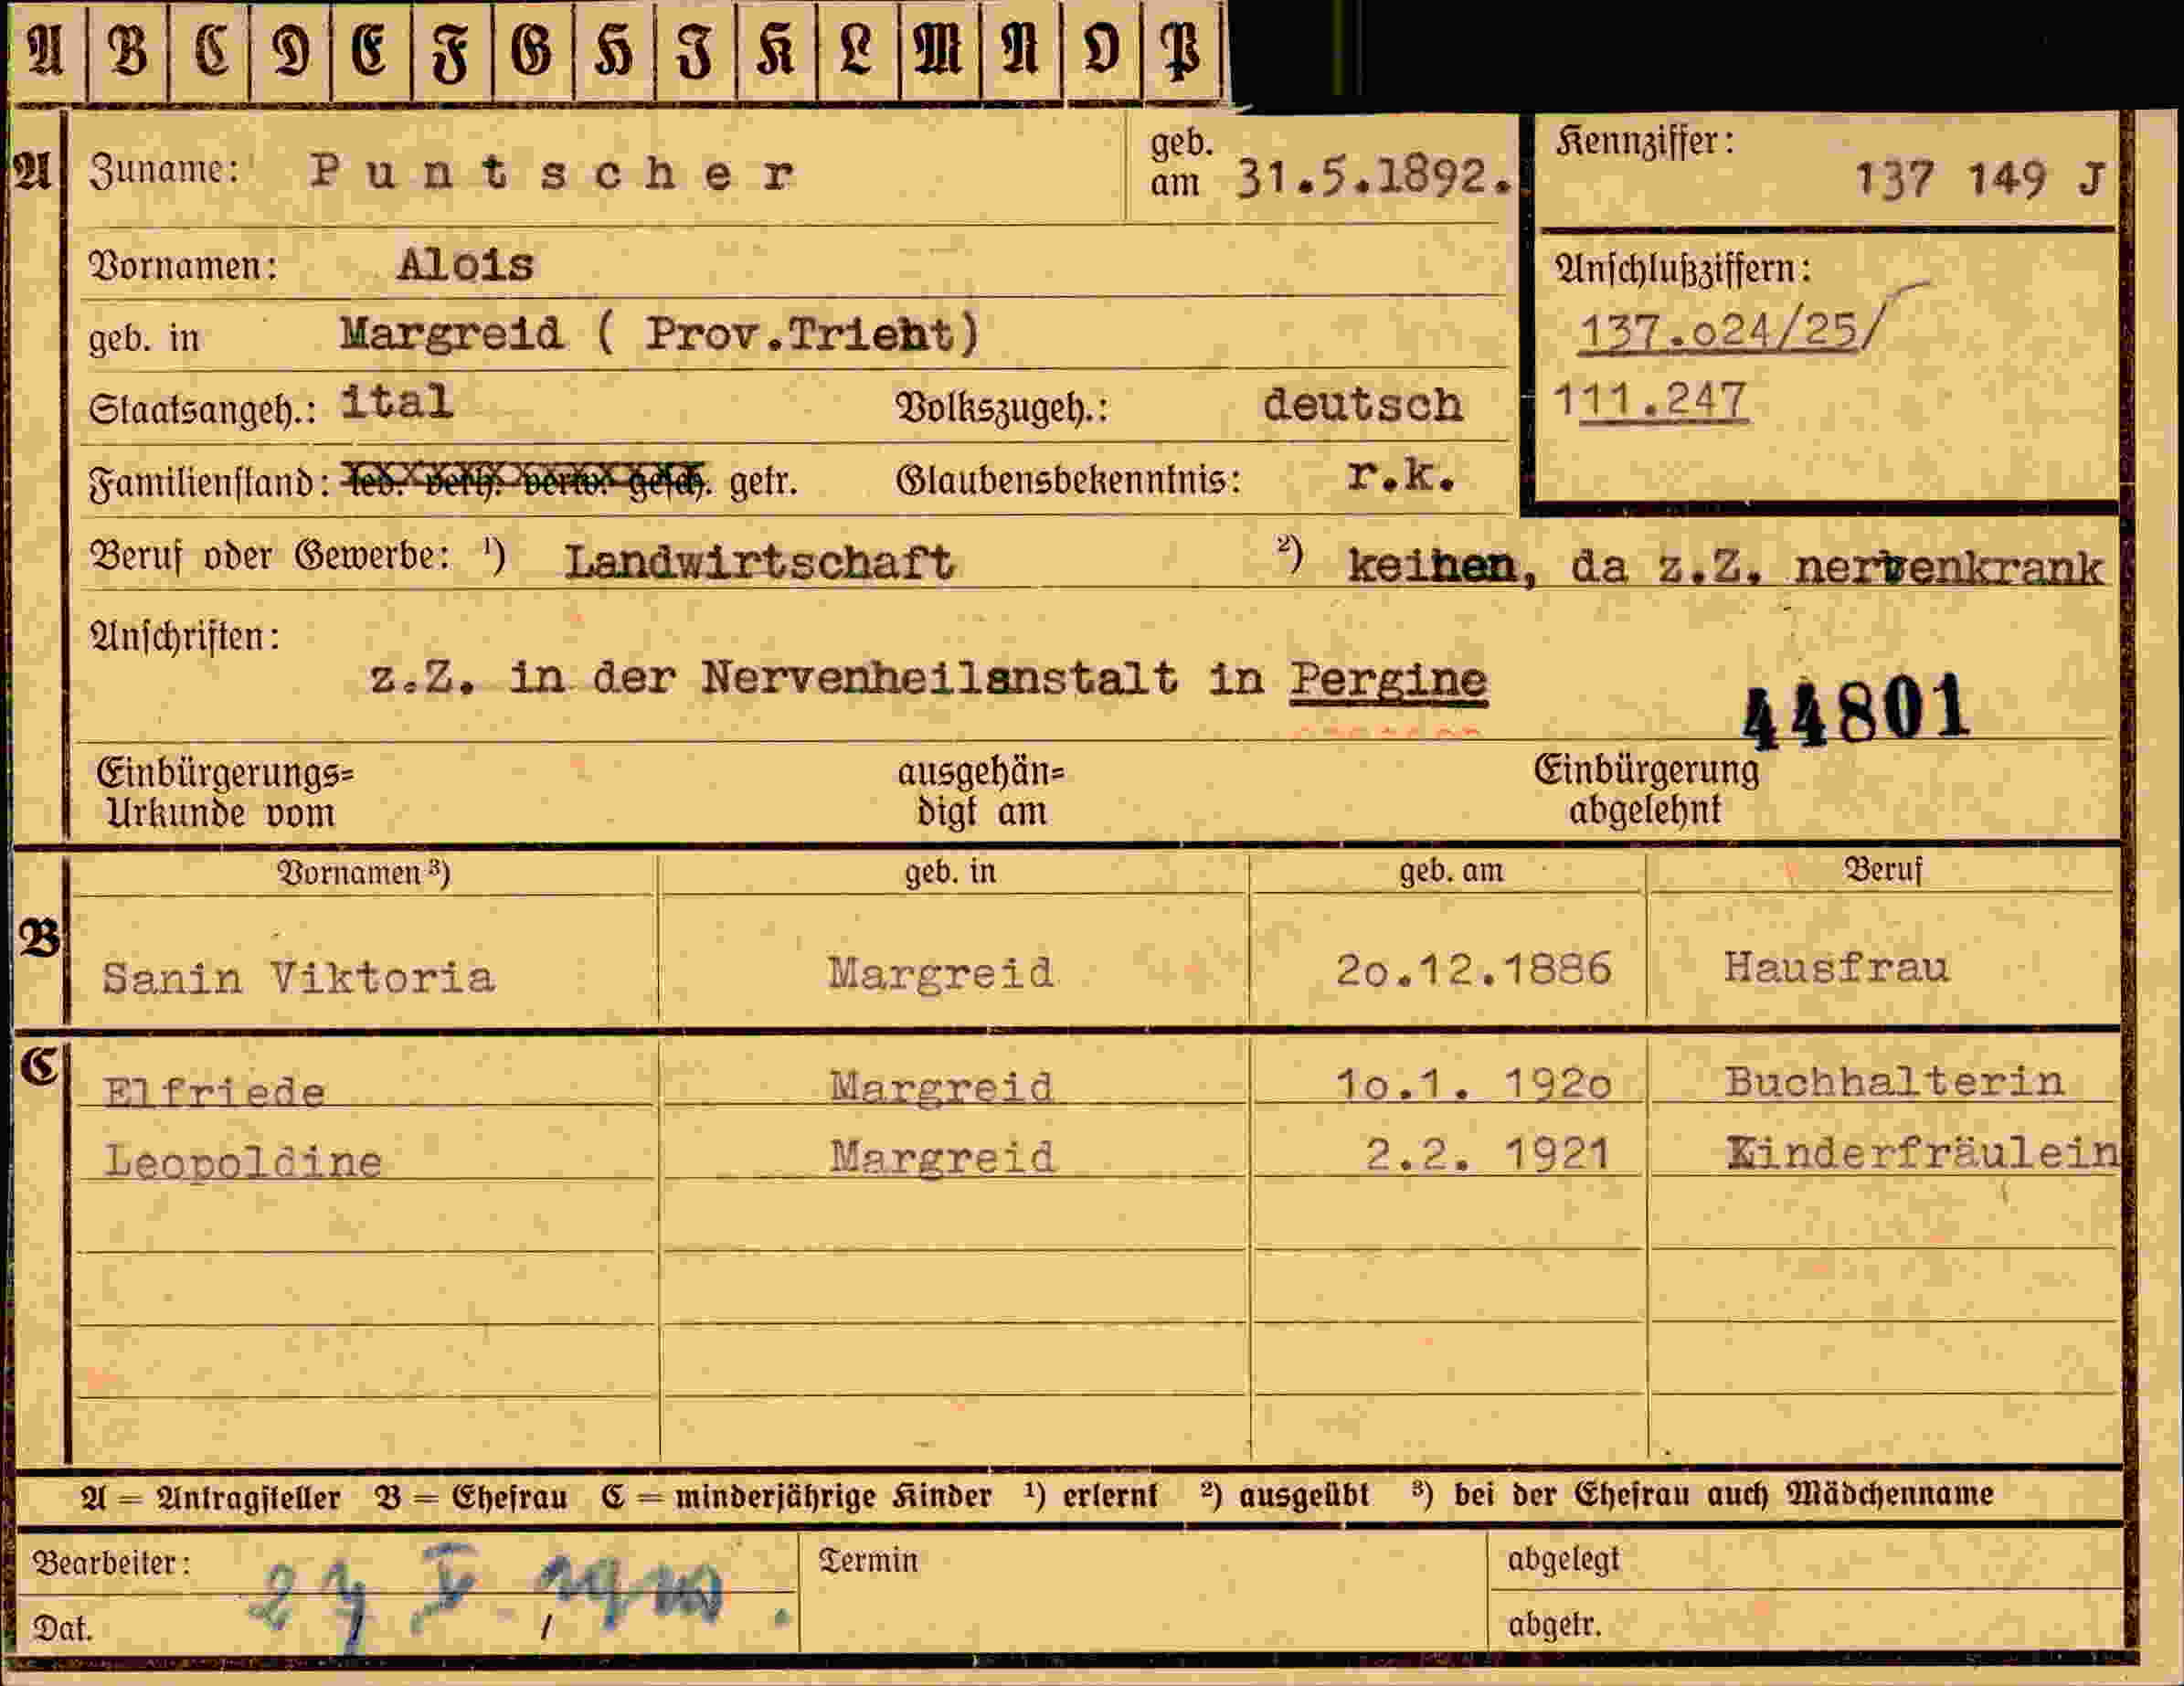 A B C D E F G H I K L M N O P
A Zuname: Puntscher geb. am 31.5.1892. Kennziffer: 137 149 J
Vornamen: Alois
Anschlußziffern:
geb. in Margreid ( Prov.Trient)
137.o24/25/
Staatsangeh.: ital Volkszugeh.: deutsch
111.247
Familienstand: led. verh. verw. gesch. getr. Glaubensbekenntnis: r.k.
Beruf oder Gewerbe: ¹) Landwirtschaft ²) keinen, da z.Z. nervenkrank
Anschriften:
z.Z. in der Nervenheilanstalt in Pergine
44801
Einbürgerungs= ausgehän= Einbürgerung
Urkunde vom digt am abgelehnt
Vornamen ³) geb. in geb. am Beruf
B Sanin Viktoria Margreid 2o.12.1886 Hausfrau
C Elfriede Margreid 1o.1. 192o Buchhalterin
Leopoldine Margreid 2.2. 1921 Kinderfräulein
A = Antragsteller B = Ehefrau C = minderjährige Kinder ¹) erlernt ²) ausgeübt ³) bei der Ehefrau auch Mädchenname
Bearbeiter: Termin abgelegt
Dat. abgetr.